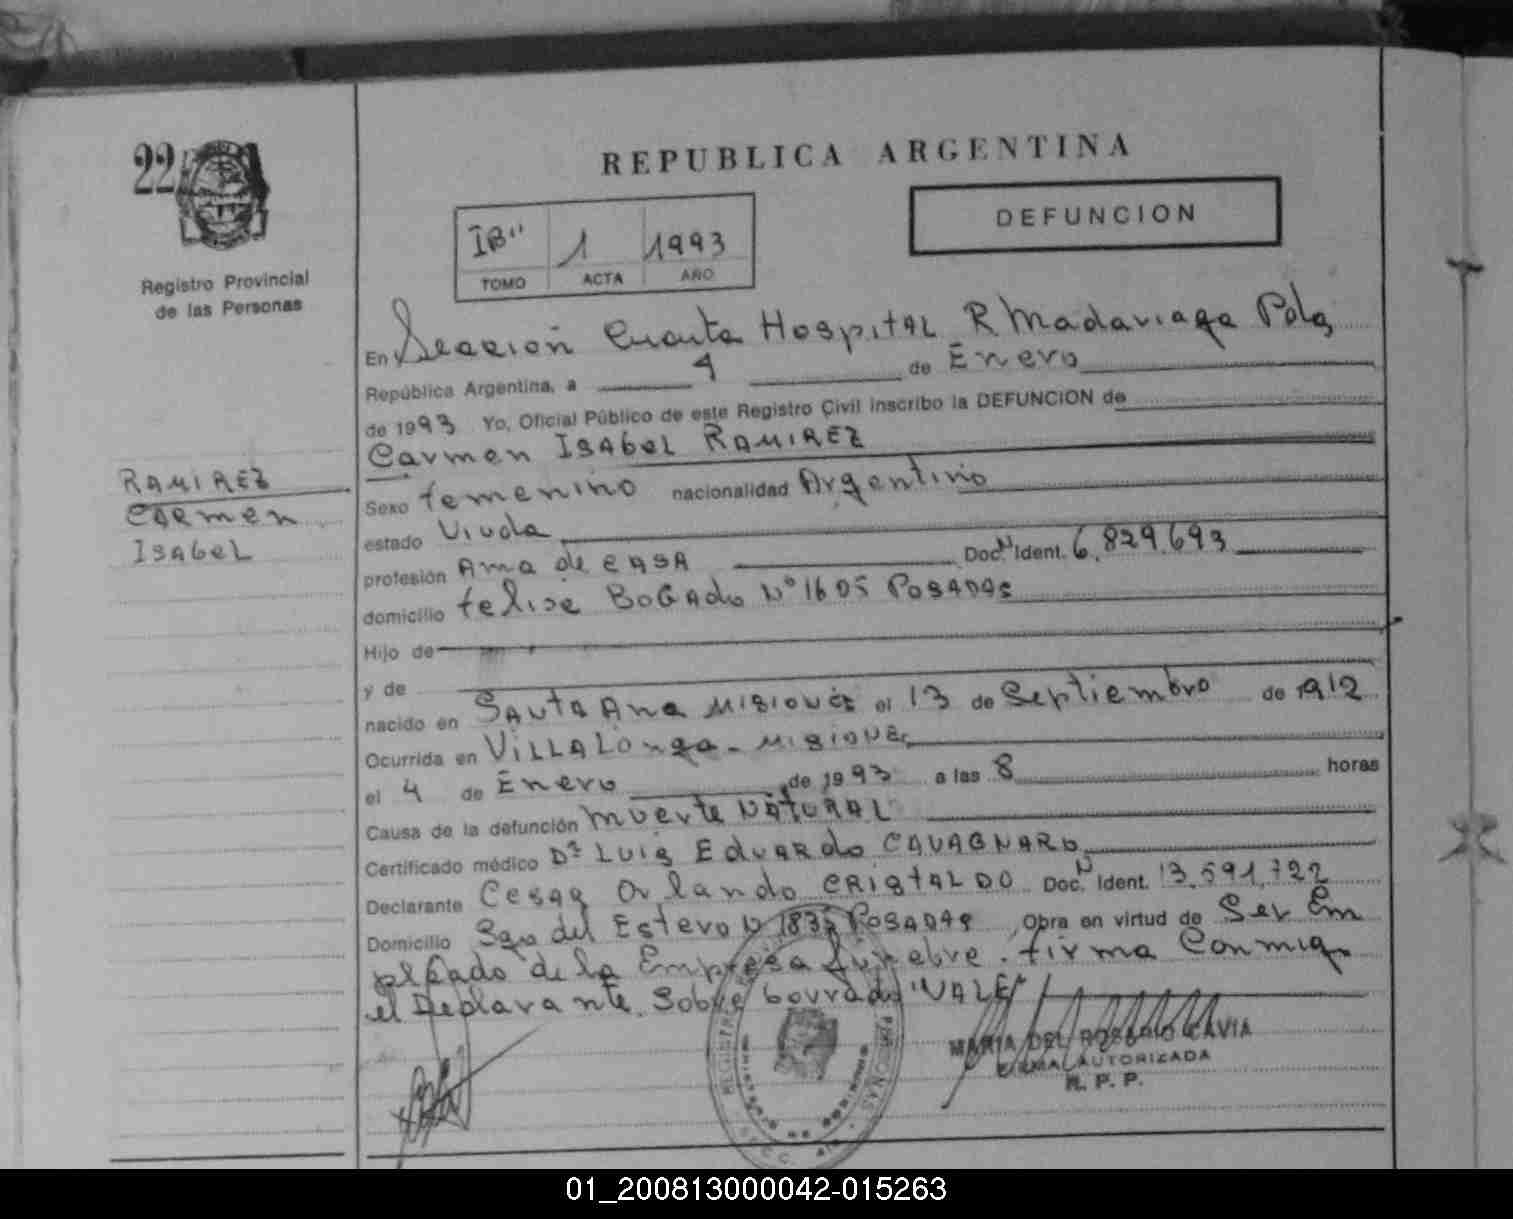 22
REPUBLICA ARGENTINA
DEFUNCION
IB" 1 1993
TOMO ACTA AÑO
Registro Provincial
de las Personas
En Seccion Cuarta Hospital R Madariaga Pdas
República Argentina, a 4 de Enero
de 1993 Yo, Oficial Público de este Registro Civil inscribo la DEFUNCION de
Carmen Isabel RAMIREZ
RAMIREZ
CARmen
ISAbeL
Sexo femenino nacionalidad Argentino
estado Viuda
profesión Ama de CASA Doc. N Ident. 6.829.693
domicilio felise BOGAdo Nº 1605 POSADAS
Hijo de
y de
nacido en SANTA Ana MISIONES el 13 de Septiembro de 1912
Ocurrida en VILLALonga - MISIONES
el 4 de Enero de 1993 a las 8 horas
Causa de la defunción muerte NATURAL
Certificado médico Dr LUIS EdUARdo CAVAGNARO
Declarante Cesar Orlando CRISTALDO Doc. N Ident. 13.591.722
Domicilio Sgo del Estero N 1835 POSADAS Obra en virtud de Ser Em
pleado de la Empresa funebre. firma Conmigo
el Declarante. Sobre borrado "VALE"
MARIA DEL ROSARIO CAVIA
FIRMA AUTORIZADA
R. P. P.
01_200813000042-015263